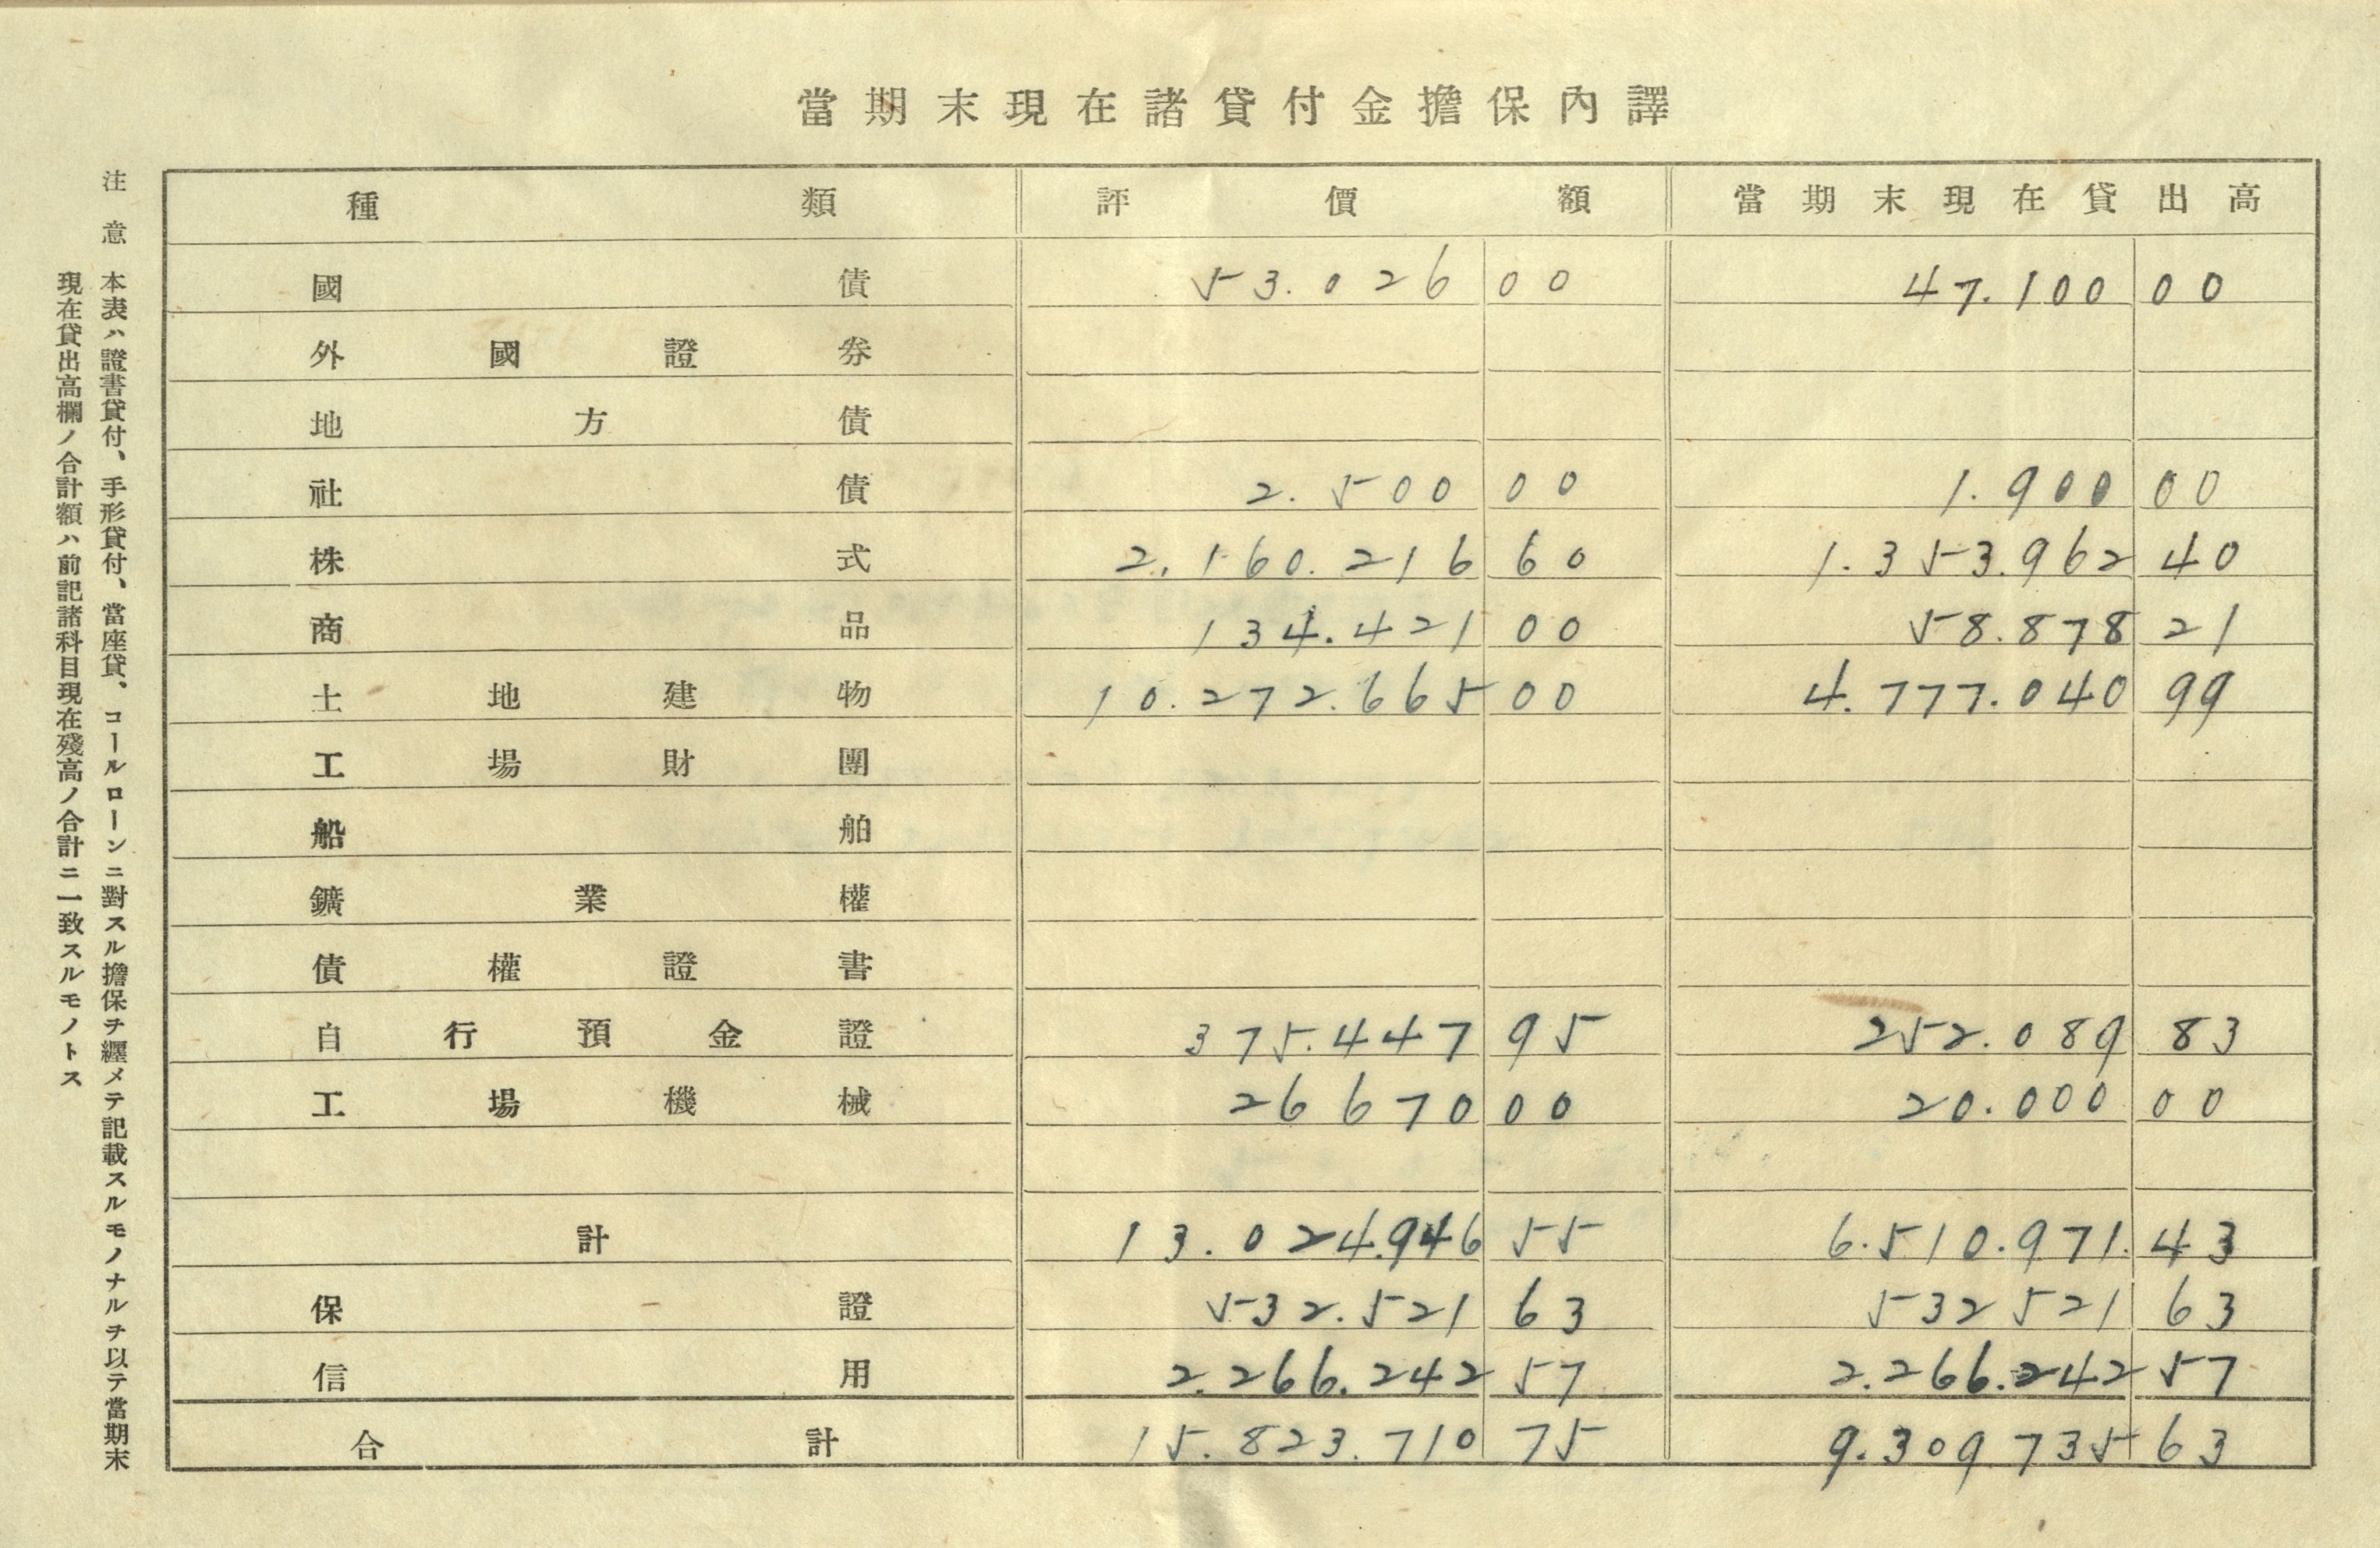 當期末現在諸貸付金擔保內譯
種類 評價額 當期末現在貸出高
國債 53.026 00 47.100 00
外國證券
地方債
社債 2.500 00 1.900 00
株式 2.160.216 60 1.353.962 40
商品 134.421 00 58.878 21
土地建物 10.272.665 00 4.777.040 99
工場財團
船舶
鑛業權
債權證書
自行預金證 375.447 95 252.089 83
工場機械 26670 00 20.000 00
計 13.024.946 55 6.510.971. 43
保證 532.521 63 532521 63
信用 2.266.242 57 2.266.242 57
合計 15.823.710 75 9.309735 63
注意 本表ハ證書貸付、手形貸付、當座貸、コールローンニ對スル擔保ヲ纒メテ記載スルモノナルヲ以テ當期末
現在貸出高欄ノ合計額ハ前記諸科目現在殘高ノ合計ニ一致スルモノトス